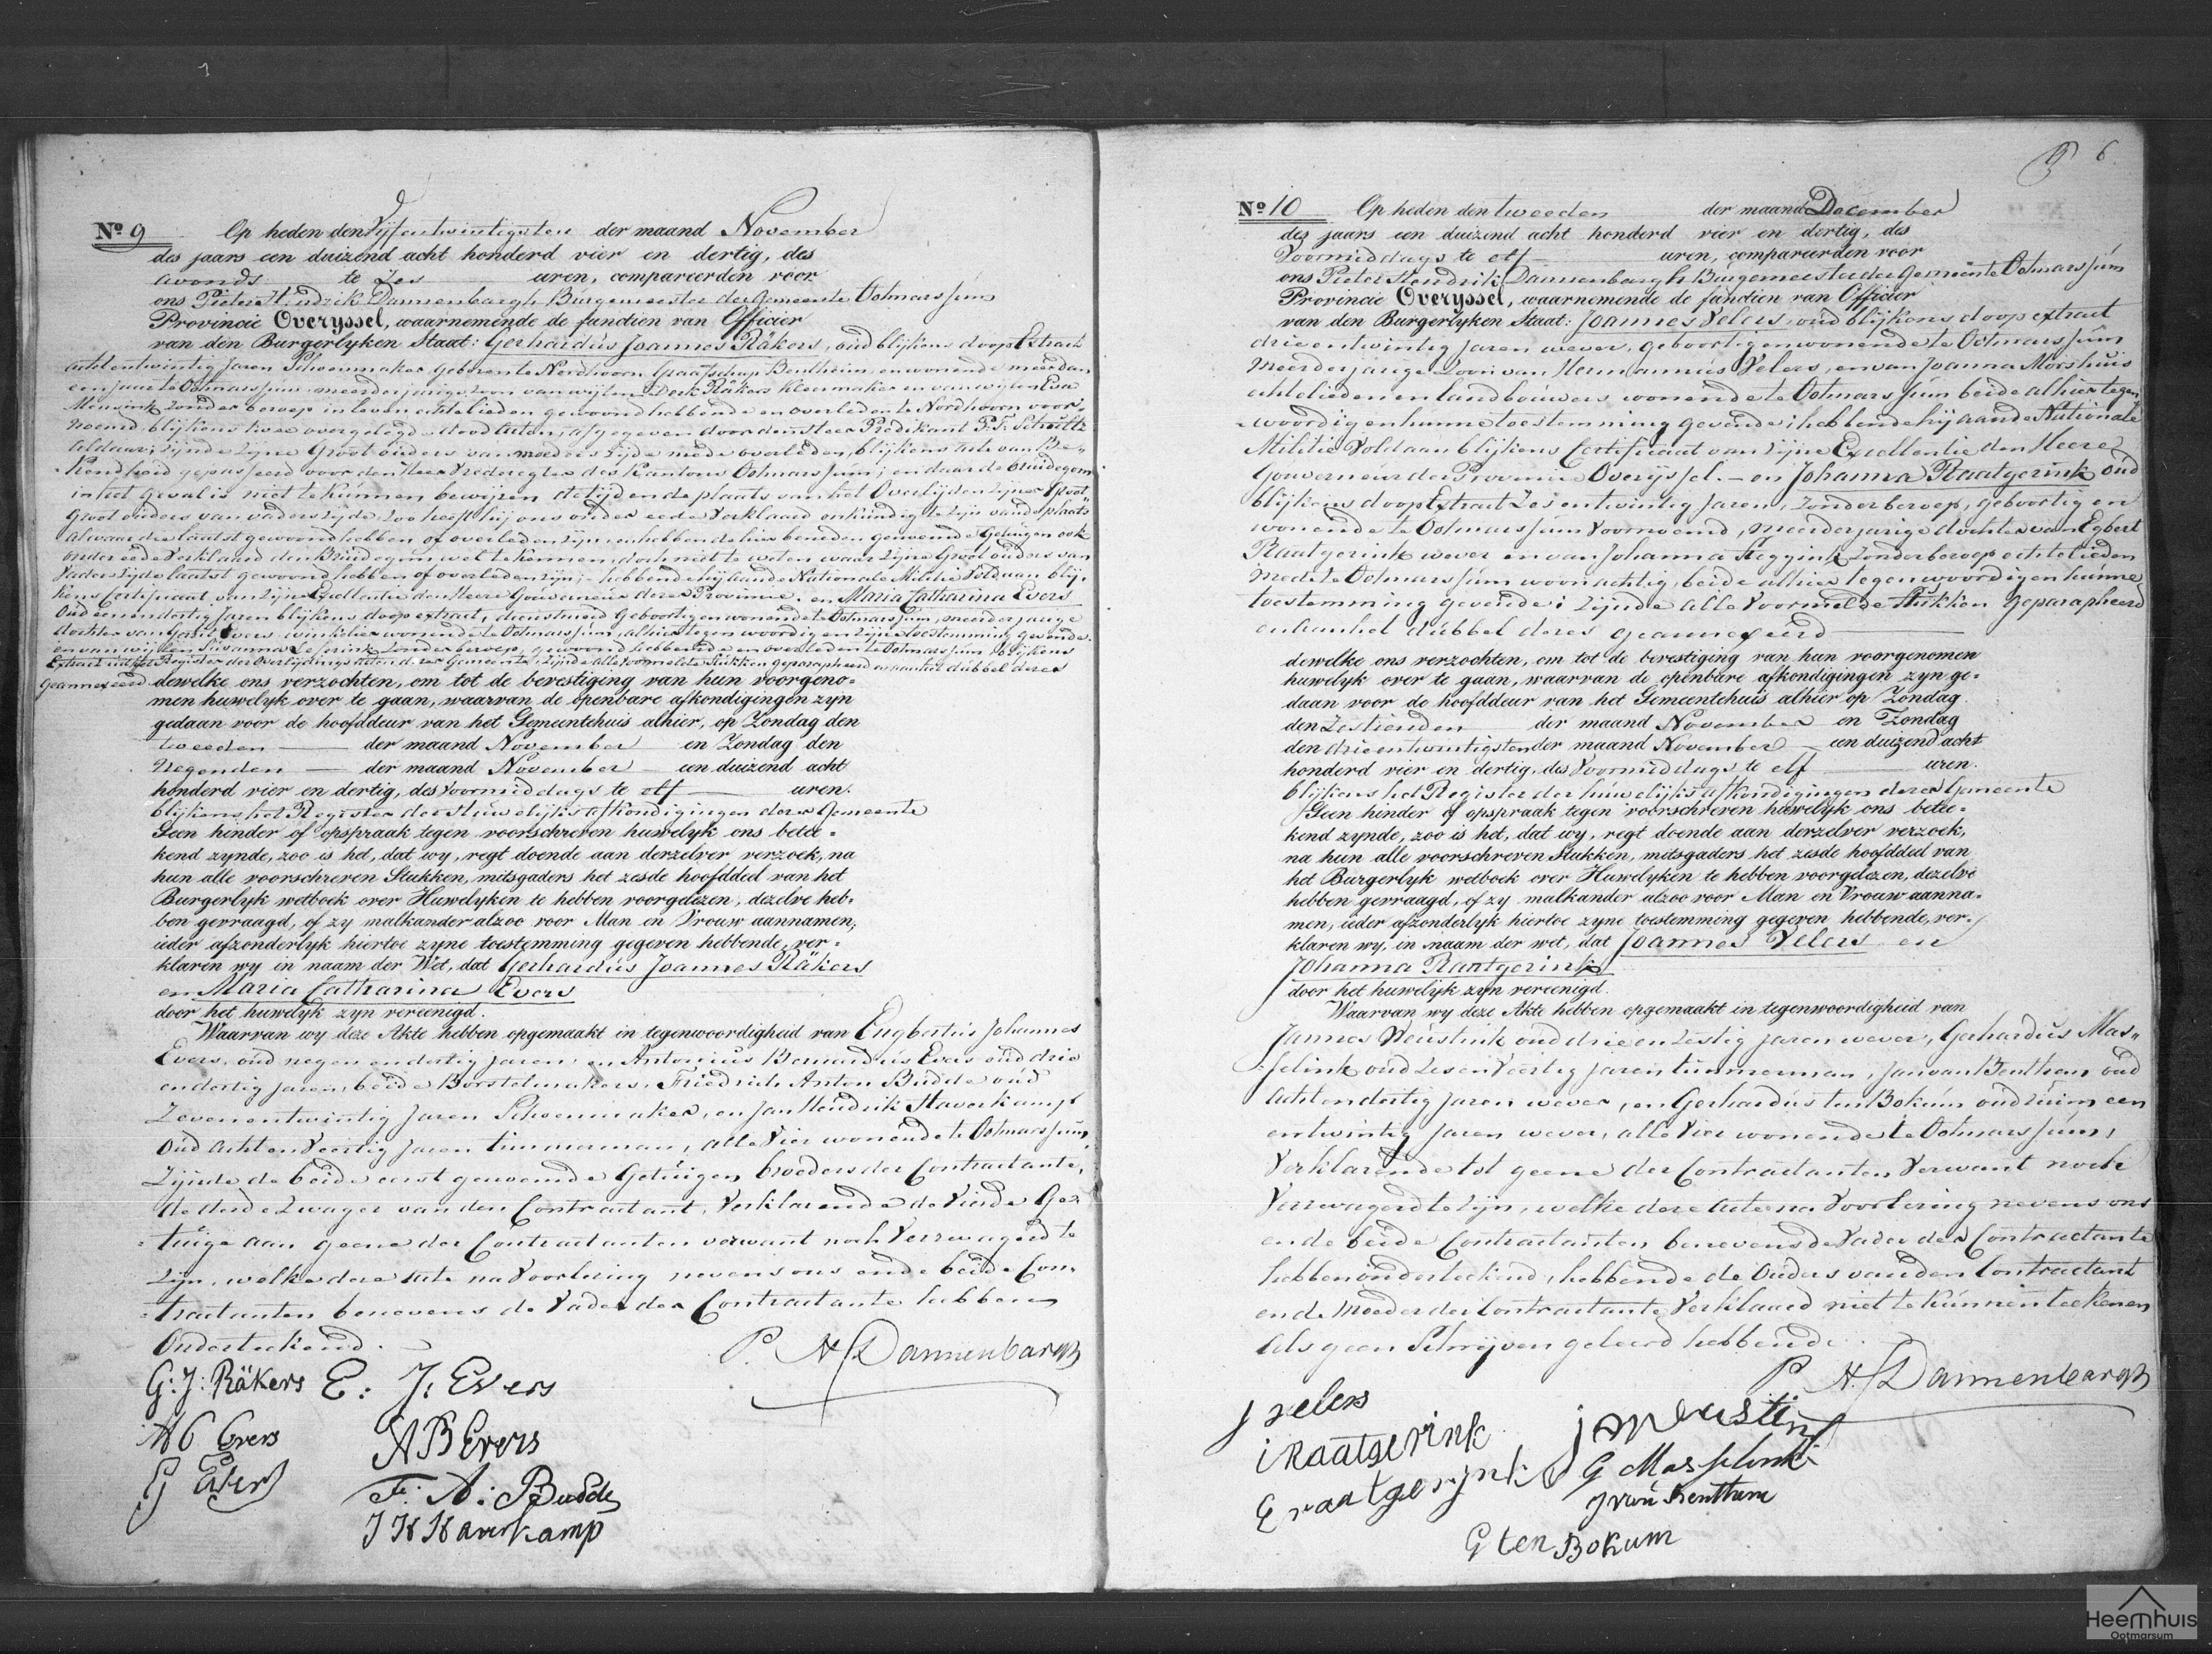 Nº 9 Op heden den Vijfentwintigsten der maand November
des jaars een duizend acht honderd vier en dertig, des
avonds te Zes uren, compareerden voor
ons Pieter Hendrik Dannenbargh Burgemeester der Gemeente Ootmarssum
Provincie Overyssel, waarnemende de functien van Officier
van den Burgerlyken Staat: Gerhardus Joannes Räkers, oud blijkens doop Extract
achtentwintig Jaren Schoenmaker geboren te Nordhoorn Graafschap Bentheim, en wonende meer dan
een jaar te Ootmarssum, meerderjarige zoon van wijlen Derk Räkers Kleermaker en van wijlen Eva
Mensink zonder beroep in leven echtelieden gewoond hebbende en overleden te Nordhoorn voor-
noemd blijkens twee overgelegde doodacten, afgegeven door den Heer Predikant P. F. Schultz
aldaar; zijnde zijne Grootouders van moeders zijde mede overleden, blijkens acte van Be-
kendheid gepasseerd voor den Heer Vrederegter des Kantons Ootmarssum; en daar de bruidegom
in het geval is niet te kunnen bewijzen de tijd en de plaats van het Overlijden zijner Groot
Grootouders van vaders zijde, zoo heeft hij ons onder eede Verklaard onkundig te zijn van de plaats
alwaar die laatst gewoond hebben of overleden zijn, en hebbende hier beneden genoemde Getuigen ook
onder eede Verklaard den Bruidegom wel te kennen, doch niet te weten waar zijne Grootouders van
Vaders zijde laatst gewoond hebben of overleden zijn; hebbende hij aan de Nationale Militie Voldaan blij-
kens Certificaat van zijne Excellentie den Heere Gouverneur dezer Provincie. en Maria Catharina Evers
Oud eenendertig Jaren blijkens doop extract, dienstmeid Geboortig en wonende te Ootmarssum, meerderjarige
dochter van Gerrit Evers winkelier wonende te Ootmarssum, alhier tegenwoordig en zijne toestemming gevende.
en van wijlen Susanna zonder beroep, gewoond hebbende en overleden te Ootmarssum blijkens
Extract uit het Register der Overlijdings acten dezer Gemeente, zijnde alle Voormelde Stukken geparapheerd en aan het dubbel dezer
geannexeerd dewelke ons verzochten, om tot de bevestiging van hun voorgeno=
men huwelyk over te gaan, waarvan de openbare afkondigingen zyn
gedaan voor de hoofddeur van het Gemeentehuis alhier, op Zondag den
tweeden der maand November en Zondag den
Negenden der maand November een duizend acht
honderd vier en dertig, des Voormiddags te elf uren.
blijkens het Register der Huwelijks afkondigingen dezer Gemeente
Geen hinder of opspraak tegen voorschreven huwelyk ons betee=
kend zynde, zoo is het, dat wy, regt doende aan derzelver verzoek, na
hun alle voorschreven Stukken, mitsgaders het zesde hoofddeel van het
Burgerlyk wetboek over Huwelyken te hebben voorgelezen, dezelve heb=
ben gevraagd, of zy malkander alzoo voor Man en Vrouw aannamen;
ieder afzonderlyk hiertoe zyne toestemming gegeven hebbende, ver=
klaren wy in naam der Wet, dat Gerhardus Joannes Räkers
en Maria Catharina Evers
door het huwelyk zyn vereenigd.
Waarvan wy deze Akte hebben opgemaakt in tegenwoordigheid van Engbertus Johannes
Evers, oud negen en dertig jaren en Antonius Bernardus Evers oud drie
en dertig jaren, beide Borstelmakers, Friedrich Anton Budde oud
Zevenentwintig Jaren Schoenmaker, en Jan Hendrik Haverkamp
Oud Acht en Veertig Jaren timmerman, alle Vier wonende te Ootmarssum,
Zijnde de beide eerst genoemde Getuigen broeders der Contractante,
de derde Zwager van den Contractant, Verklarende de Vierde Ge-
tuige aan geene der Contractanten verwant noch Verzwagerd te
Zijn, welke deze Acte na Voorlezing nevens ons en de beide Con-
tractanten benevens de Vader der Contractante hebben
Onderteekend.
P. H. Dannenbargh
G: J: Räkers E. J. Evers
M C Evers A B Evers
G Evers F. A. Budde
J H Haverkamp
6
Nº 10 Op heden den tweeden der maand December
des jaars een duizend acht honderd vier en dertig, des
Voormiddags te elf uren, compareerden voor
ons Pieter Hendrik Dannenbargh Burgemeester der Gemeente Ootmarssum
Provincie Overyssel, waarnemende de functien van Officier
van den Burgerlyken Staat: Joannes Velers, oud blijkens doop extract
drieentwintig Jaren wever, geboortig en wonende te Ootmarssum
meerderjarige Zoon van Hermannus Velers, en van Joanna Morshuis
echtelieden en landbouwers wonende te Ootmarssum beide alhier tegen-
woordig en hunne toestemming gevende; hebbende hij aan de Nationale
Militie Voldaan blijkens Certificaat van zijne Excellentie den Heere
Gouverneur der Provincie Overijssel. – en Johanna Raatgerink oud
blijkens doop Extract Zes entwintig Jaren, Zonder beroep, geboortig en
wonende te Ootmarssum Voornoemd, meerderjarige dochter van Egbert
Raatgerink wever en van Johanna zonder beroep echtelieden
mede te Ootmarssum woonachtig, beide alhier tegenwoordig en hunne
toestemming gevende; Zijnde alle Voormelde Stukken Geparapheerd
en aan het dubbel dezes geannexeerd
dewelke ons verzochten, om tot de bevestiging van hun voorgenomen
huwelyk over te gaan, waarvan de openbare afkondigingen zyn ge=
daan voor de hoofddeur van het Gemeentehuis alhier op Zondag
den Zestienden der maand November en Zondag
den drieentwintigsten der maand November een duizend acht
honderd vier en dertig, des Voormiddags te elf uren.
blijkens het Register der huwelijks afkondigingen dezer Gemeente
Geen hinder of opspraak tegen voorschreven huwelyk ons betee=
kend zynde, zoo is het, dat wy, regt doende aan derzelver verzoek,
na hun alle voorschreven Stukken, mitsgaders het zesde hoofddeel van
het Burgerlyk wetboek over Huwelyken te hebben voorgelezen, dezelve
hebben gevraagd, of zy malkander alzoo voor Man en Vrouw aanna=
men, ieder afzonderlyk hiertoe zyne toestemming gegeven hebbende, ver=
klaren wy, in naam der wet, dat Joannes Velers en
Johanna Raatgerink
door het huwelyk zyn vereenigd.
Waarvan wy deze Akte hebben opgemaakt in tegenwoordigheid van
Jannes Neustink oud drie en Zestig jaren wever, Gerhardus Mas-
selink oud Zes en Veertig jaren timmerman, Jan van Benthem oud
Acht en dertig jaren wever, en Gerhardus ten Bokum oud ruim een
entwintig jaren wever, alle Vier wonende te Ootmarssum,
Verklarende tot geene der Contractanten Verwant noch
Verzwagerd te zijn, welke deze acte na Voorlezing nevens ons
en de beide Contractanten benevens de Vader der Contractante
hebben onderteekend, hebbende de Ouders van den Contractant
en de Moeder der Contractante Verklaard niet te Kunnen teekenen
Als geen Schrijven geleerd hebbende.
P. H. Dannenbargh
J velers
i Raatgerink
E raatgerink G Masselink
J van Benthem
G ten Bokum
Heemhuis
Ootmarsum